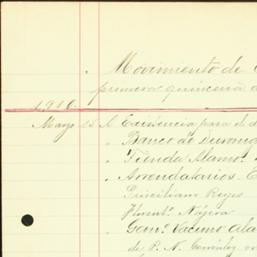 Movimiento de
primera quincena d
1910.
Mayo 15 A Existencia para el d
" Banco de Durang
" Tienda Alamo.
" Arrendatarios E
Prisciliano Reyes
Florentº Nájera
" Ganº Vacuno Ala
de P. N. González